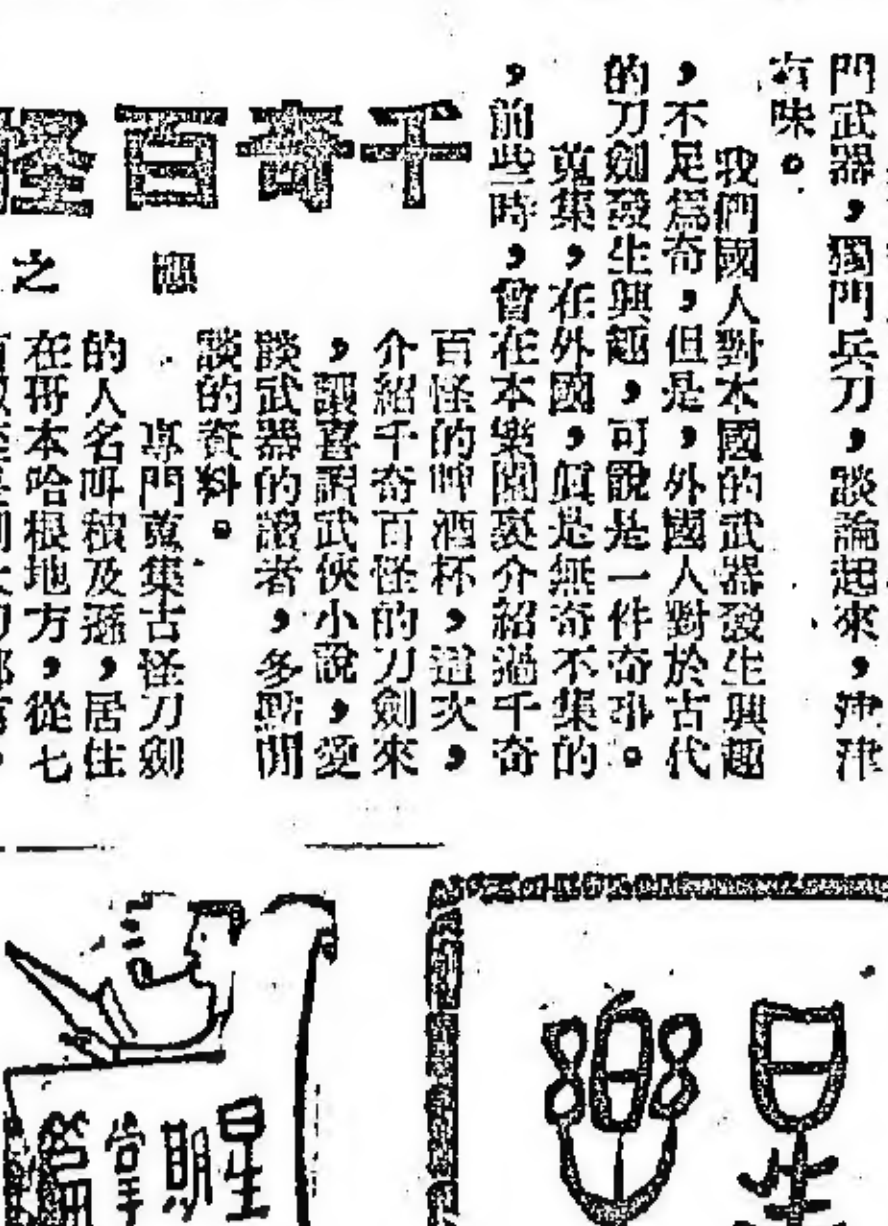 門武器，獨門兵刀，談論起來，津津
有味。
我們國人對本國的武器發生興趣
，不足爲奇，但是，外國人對於古代
的刀劍發生興趣，可說是一件奇事。
蒐集，在外國，眞是無奇不集的
，前些時，曾在本樂園裏介紹過千奇
百怪的啤酒杯，這次，
介紹千奇百怪的刀劍來
，讓喜讀武俠小說，愛
談武器的讀者，多點閒
談的資料。
千奇百怪
之
專門蒐集古怪刀劍
的人名叫積及遜，居住
在哥本哈根地方，從七
星期堂